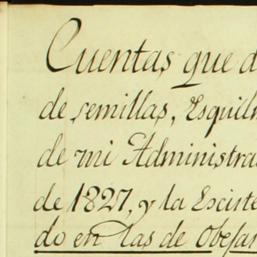 Cuentas que d
de semillas, Esquil
de mi Administra
de 1827, y la Esciste
do en las de Obejar